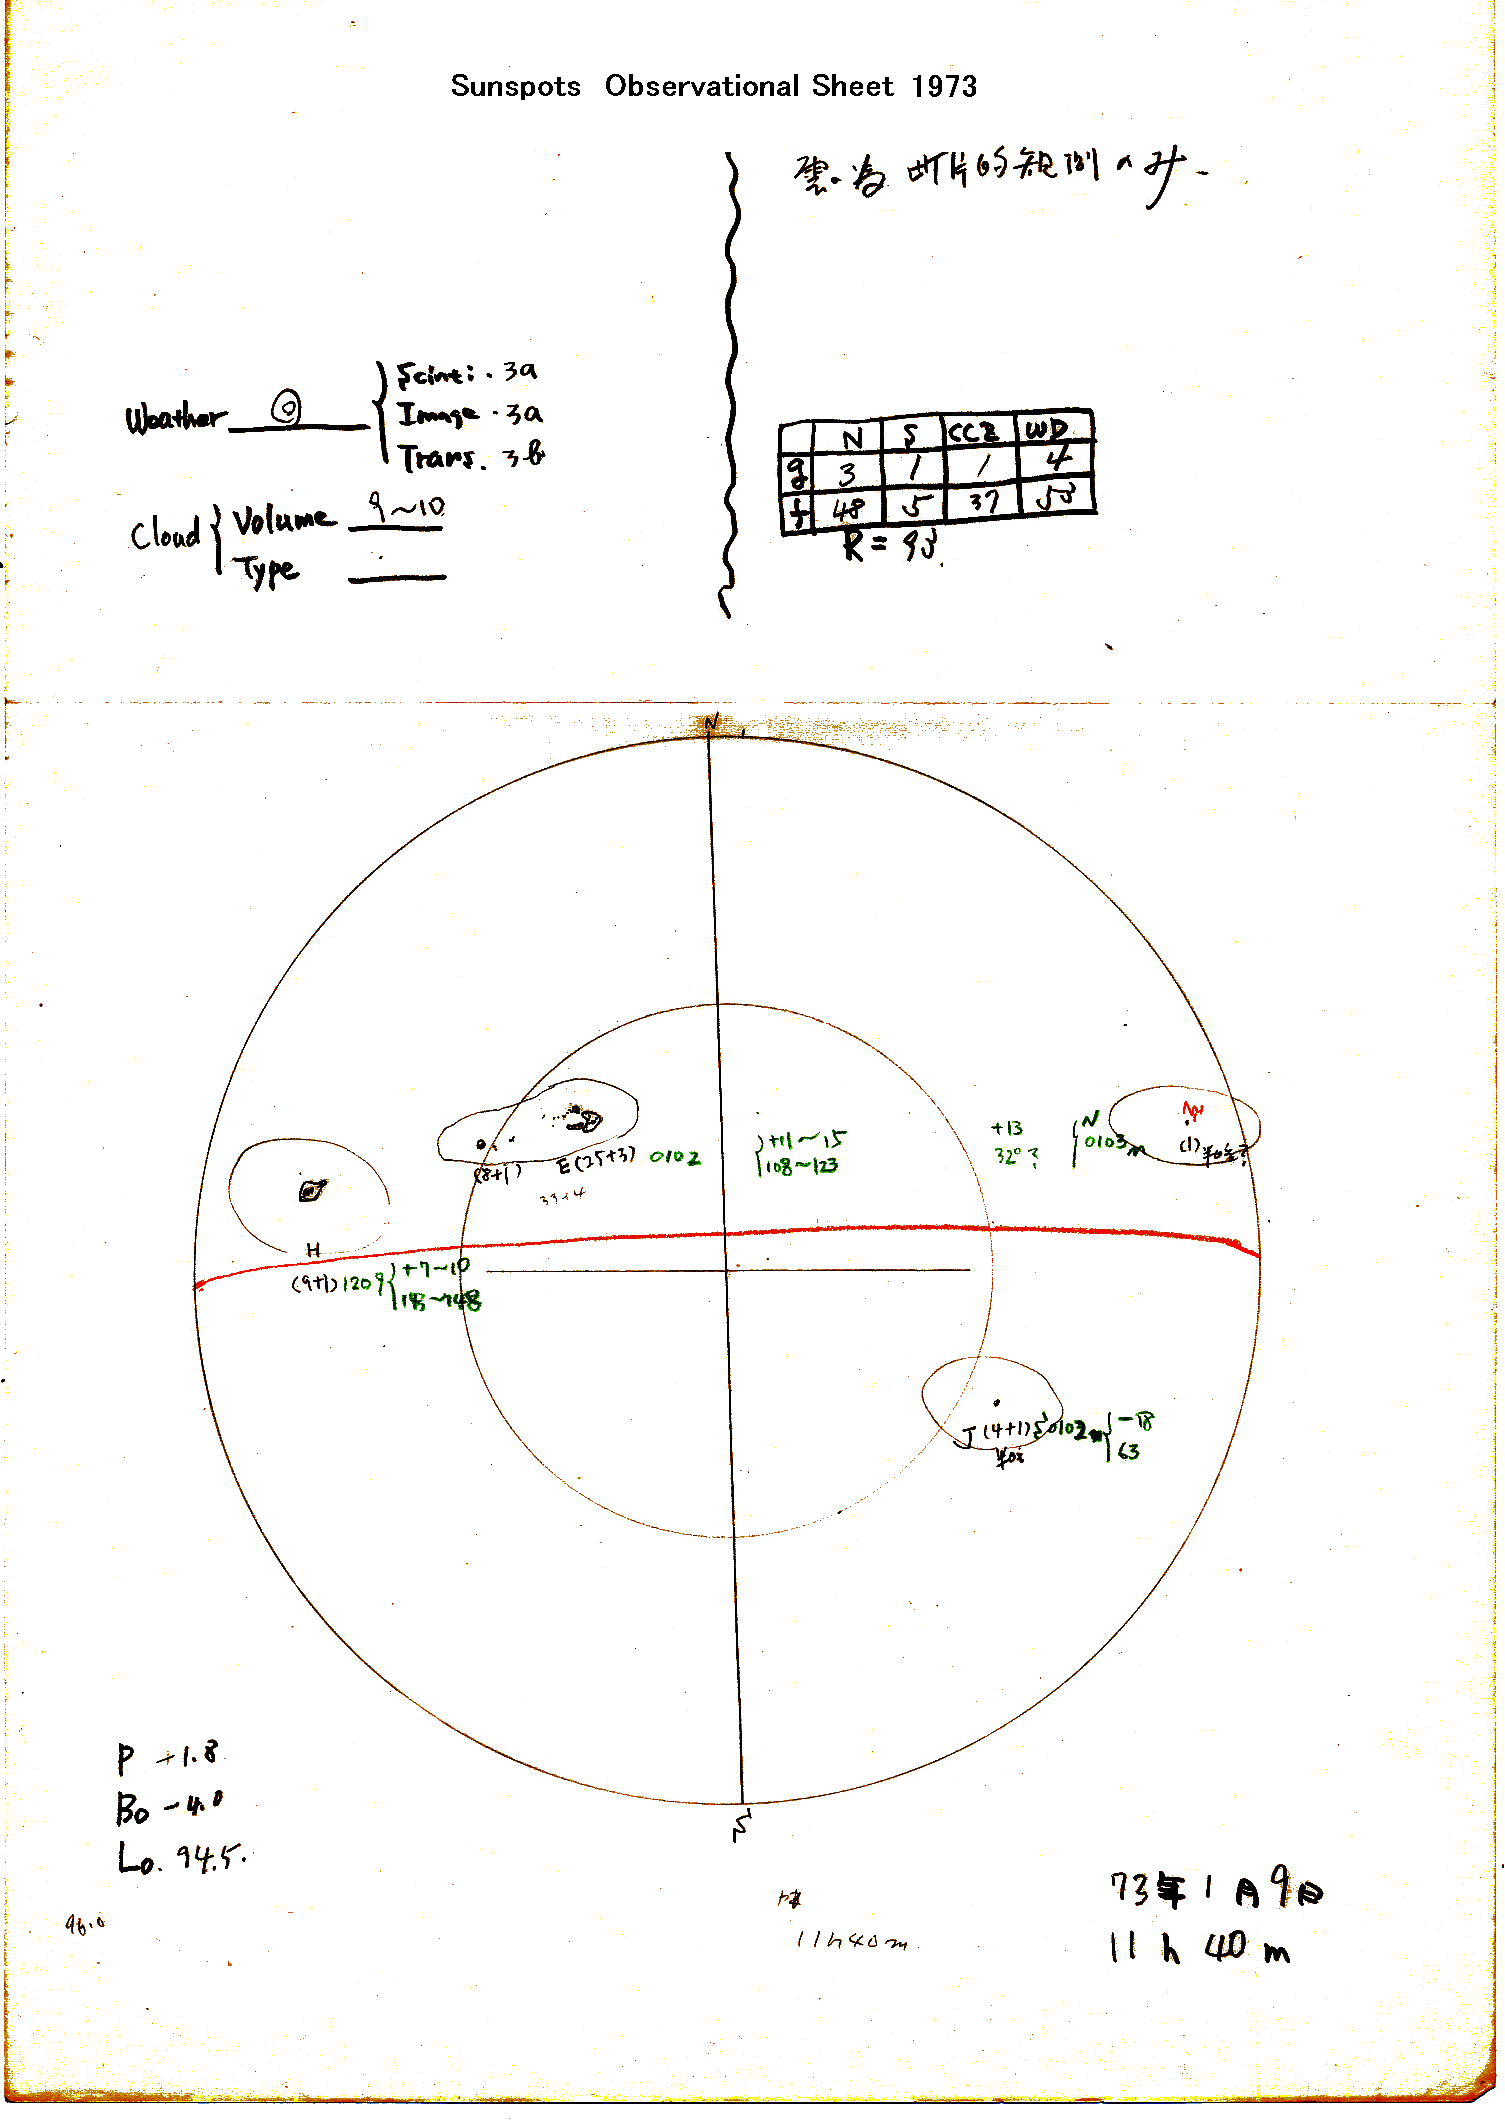 Sunspots Observational Sheet 1973
雲の為 断片的観測のみ.
Weather ◎
Scinti. 3a
Image. 3a
Trans. 3b
Cloud
Volume 9~10
Type
N S CCZ WD
g 3 1 1 4
f 48 5 37 53
R = 93.
N
+11~15
108~123
+13
32°?
N
0103m
(1)
(8+1)
E(25+3) 0102
33+4
H
(9+1) 1209
+7~10
J(4+1) S0102m
-18
63
S
P +1.8
Bo -4.0
Lo. 94.5.
96.0
11h40m
73年1月9日
11h 40m